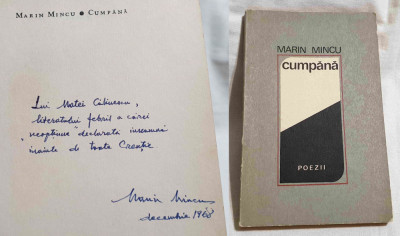 MARIN MINCU ● CUMPĂNĂ
Lui Matei Călinescu,
literatului febril a cărei
"neopțiune" declarată înseamnă
înainte de toate Creație.
Marin Mincu
decembrie 1968
MARIN MINCU
cumpănă
POEZII